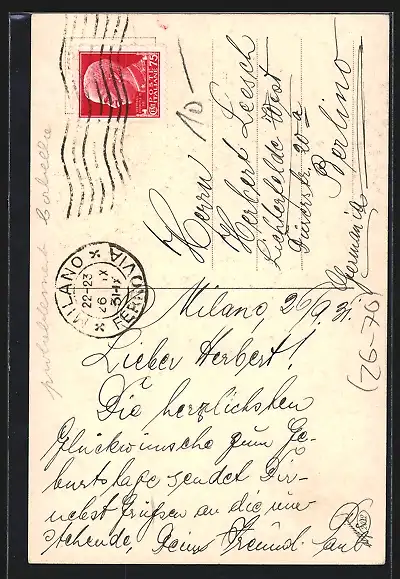 POSTE
ITALIANE
75
MILANO
FERROVIA
22-23
26 IX
31-IX
10-
Herrn
Herbert Loesch
Lichterfelde West
20 a
Berlino
Germania
Milano, 26/9.31.
Lieber Herbert!
Die herzlichsten
Glückwünsche zum Ge-
burtstage sendet Dir
nebst Grüßen an die
Dein Freund
(26-70)